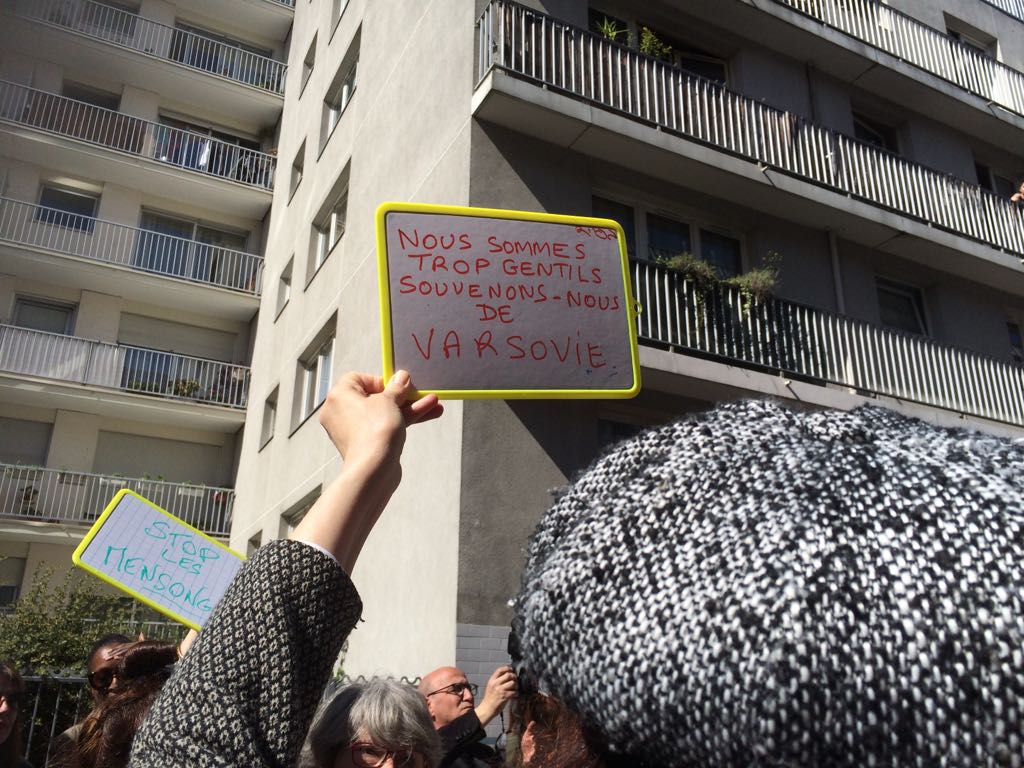 NOUS SOMMES
TROP GENTILS
SOUVENONS-NOUS
DE
VARSOVIE
STOP
LES
MENSONG